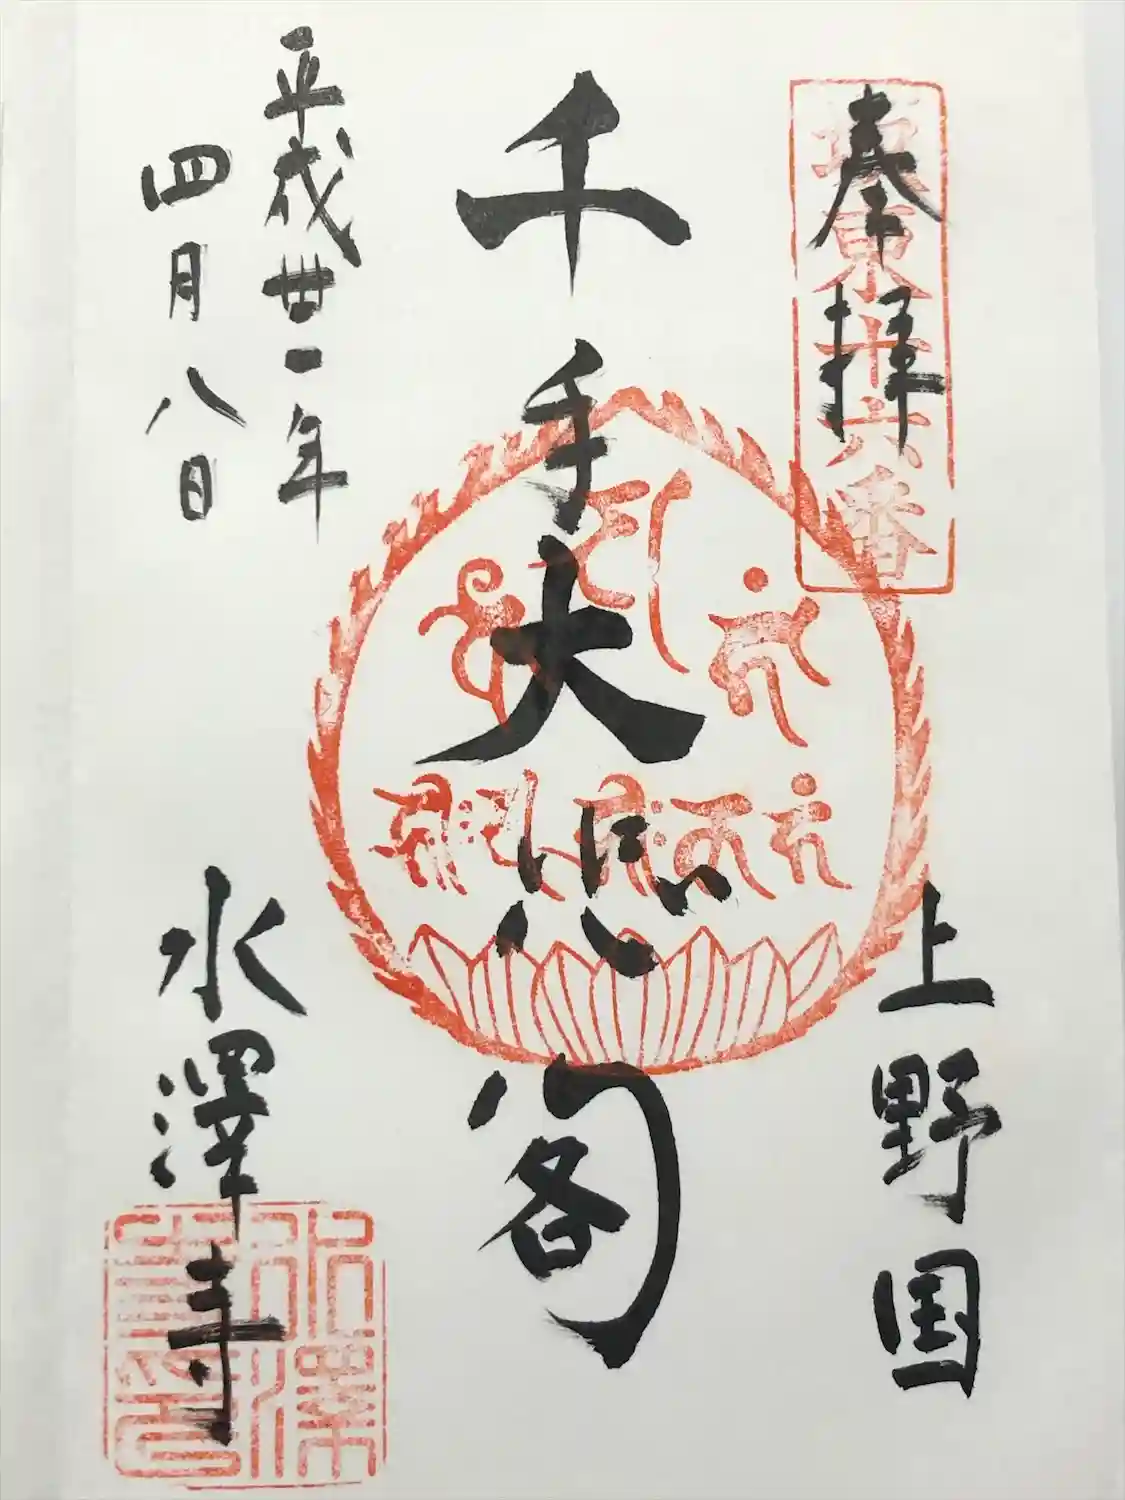 奉拝
坂東十六番
上野国
千手大悲閣
平成卅一年
四月八日
水澤寺
水澤寺印